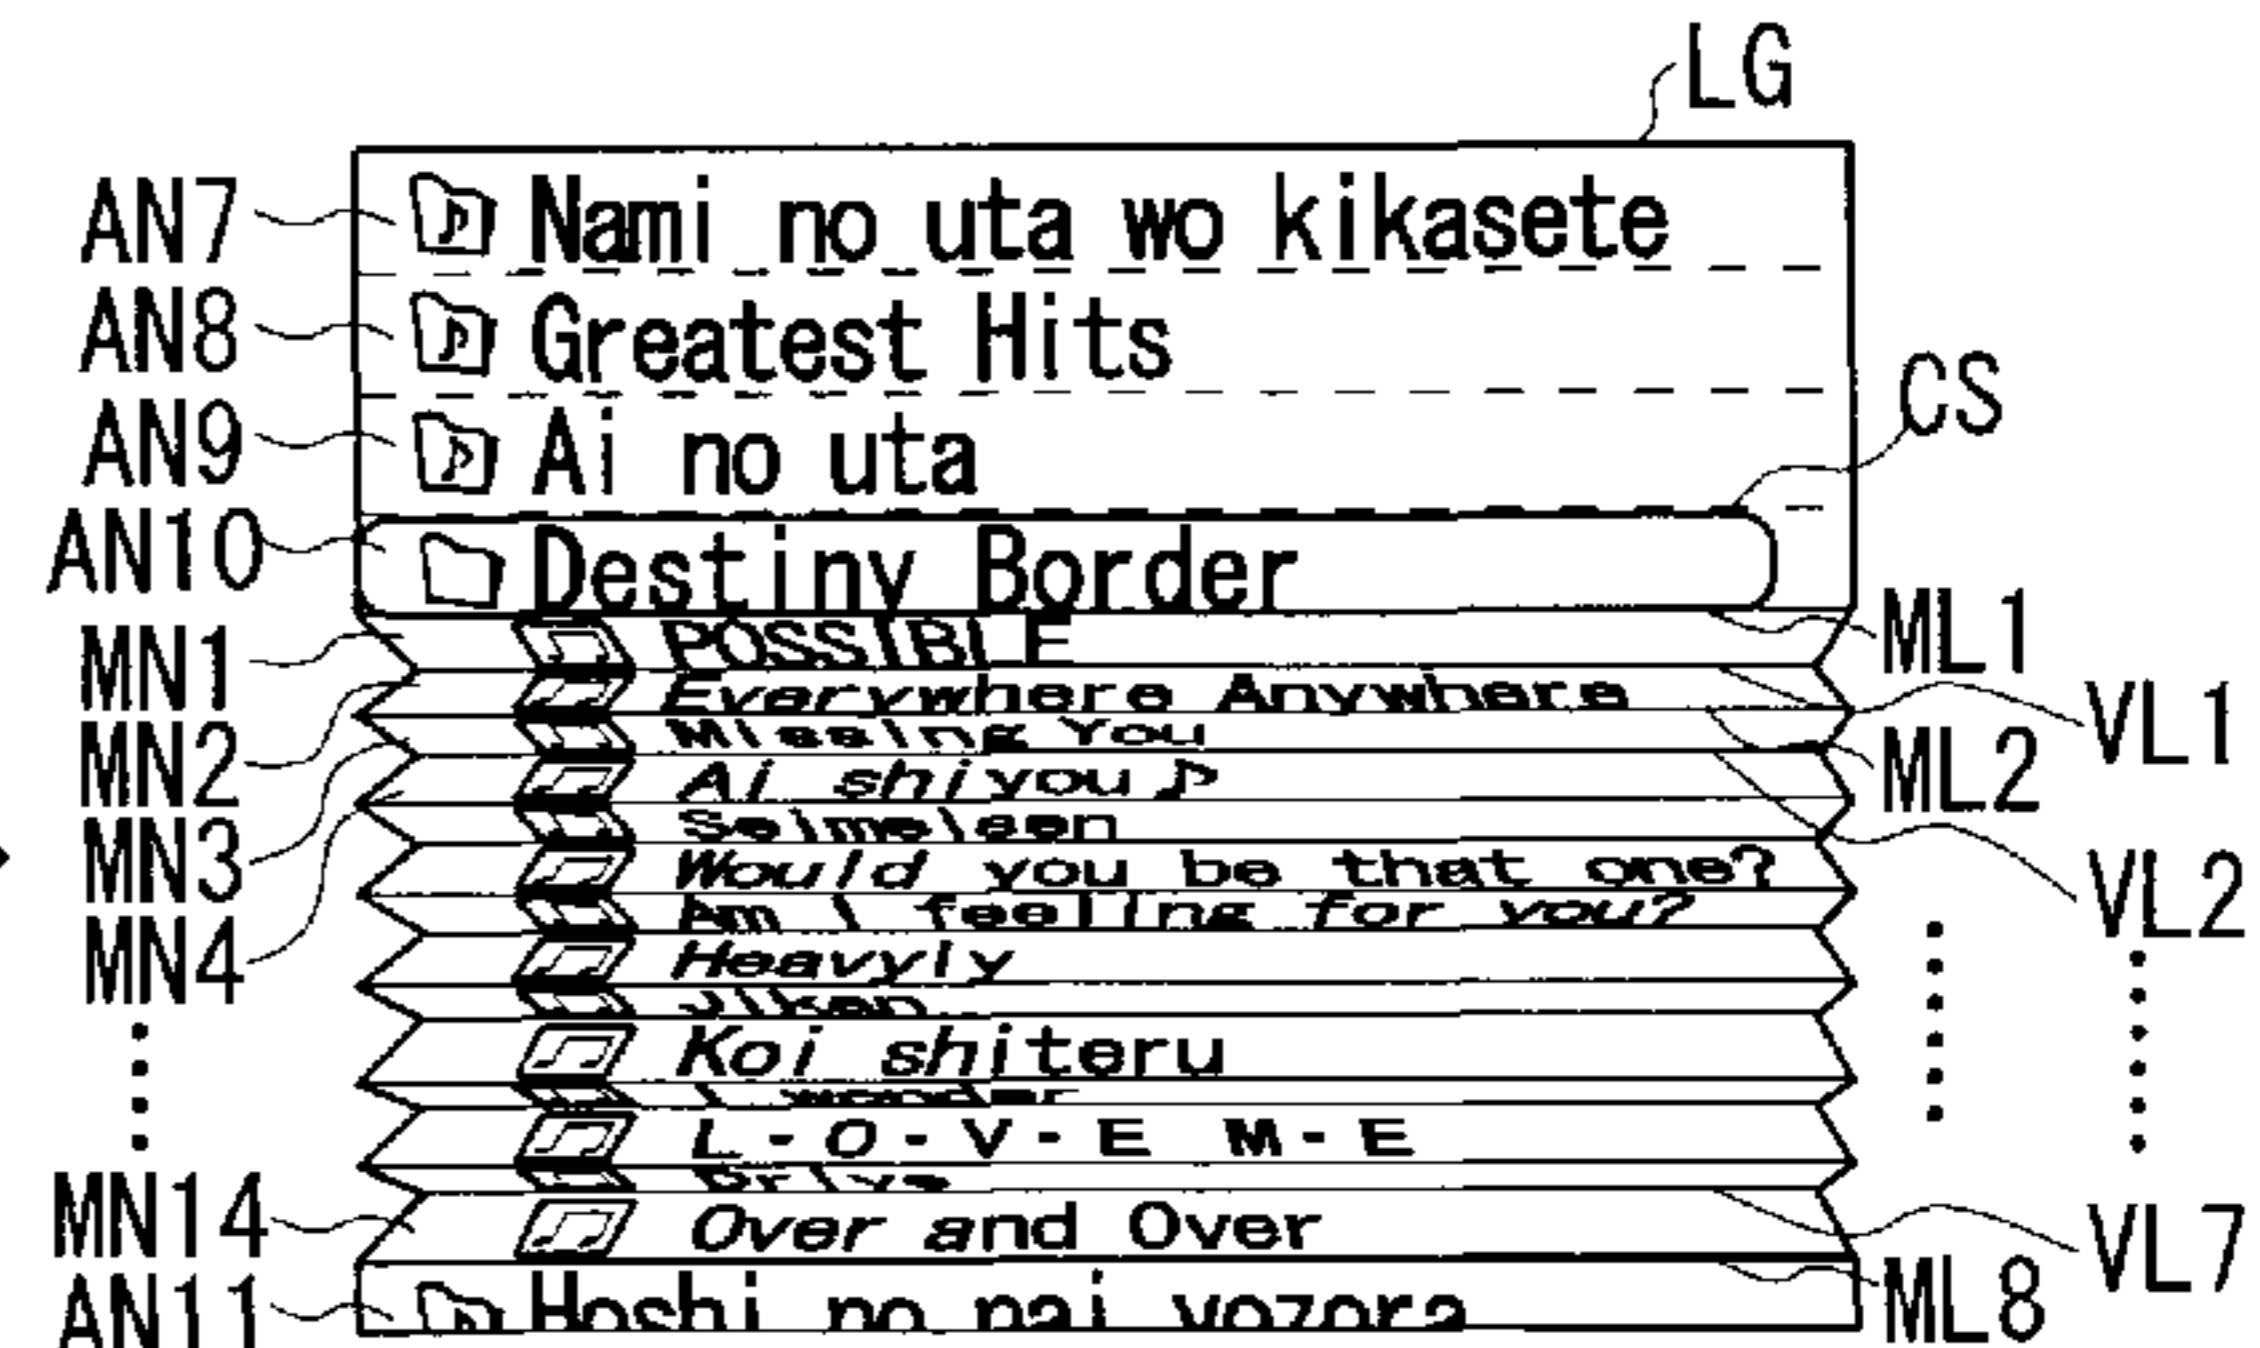 LG
AN7 Nami no uta wo kikasete
AN8 Greatest Hits
CS
AN9 Ai no uta
AN10 Destiny Border
ML1
MN1 POSSIBLE
VL1
MN2 Everywhere Anywhere
ML2
MN3 Missing You
MN4 Ai shiyou♪
VL2
Would you be that one?
Am I feeling for you?
Heavyly
Jiken
Koi shiteru
I wonder
L-O-V-E M-E
Drive
VL7
MN14 Over and Over
ML8
AN11 Hoshi no nai yozora